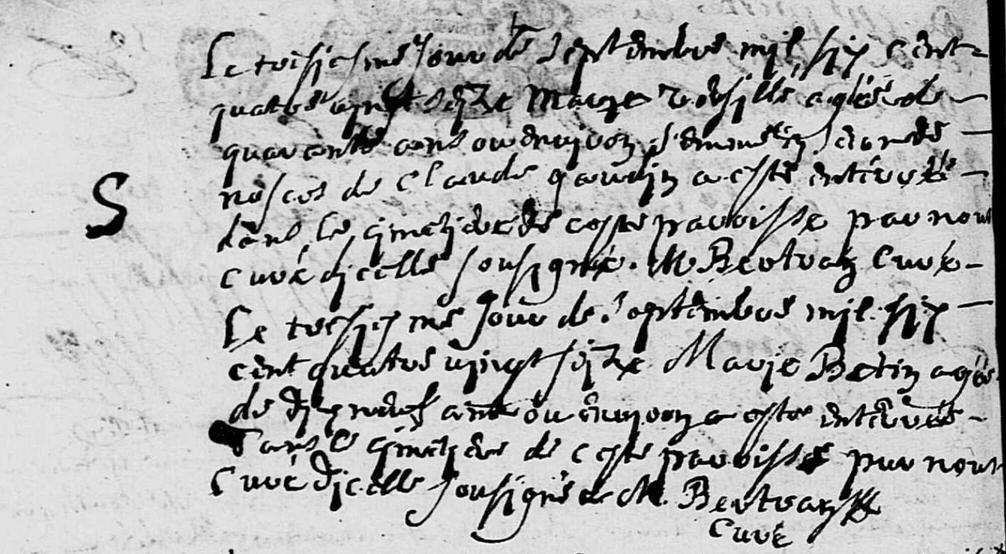 Le troisiesme Jour de Septembre mil six cent
quatre vingt seize Marie agée de
quarante ans ou environ femme en secondes
nosces de Claude gaudin a esté enterrée
dans le cimetiere de ceste parroisse par nous
Curé dicelle sousigné. M Bertran Curé
S
Le troisiesme Jour de Septembre mil six
cent quatre vingt seize Marie Betin agée
de dix neuf ans ou environ a esté enterrée
dans le cimetiere de ceste parroisse par nous
Curé dicelle sousigné M. Bertran
Curé